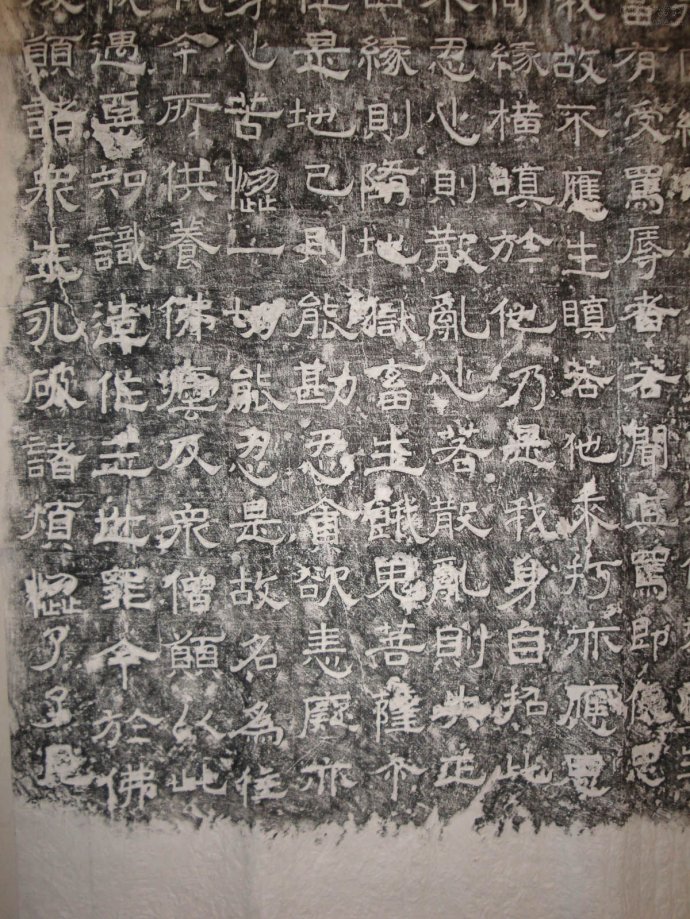 有受罵辱者若聞其罵即便思
我故不應生瞋若他來打亦應思
何緣橫瞋於他乃是我身自招此
不忍心則散亂心若散亂則失正
因緣則墮地獄畜生餓鬼菩薩亦
住是地已則能堪忍貪欲恚癡亦
身心苦惱一切能忍是故名為住
今所供養佛德及眾僧願以此
遇惡知識造作三世罪今於佛
願諸眾生永破諸煩惱了了見